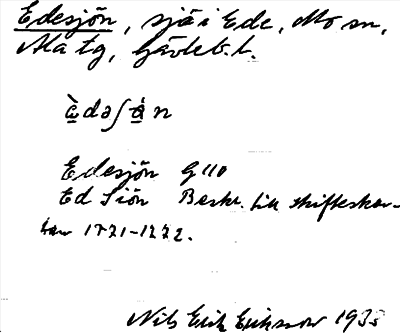 Edesjön, sjö i Ede, Mo sn,
Ala tg, Gävleb. l.
Edesjön G 110
Ed Siön Beskr. till skifteskar-
tan
Nils Erik Eriksson 1935